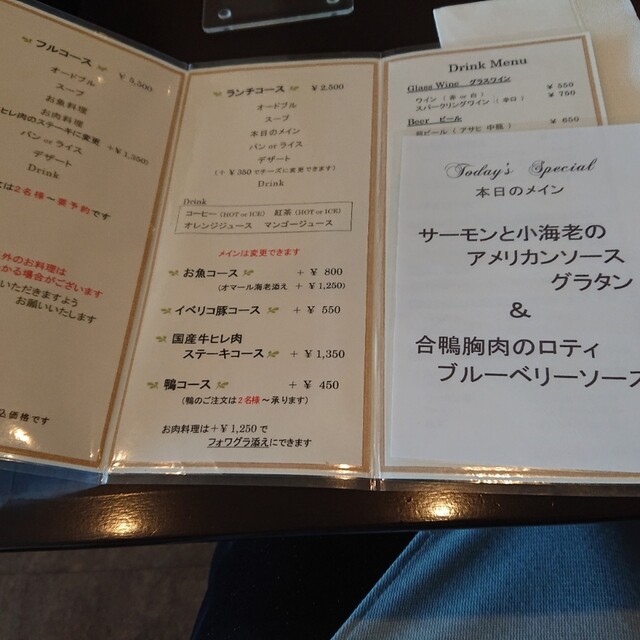 フルコース ¥5,500
オードブル
スープ
お魚料理
お肉料理
ヒレ肉のステーキに変更 +¥1,350)
パン or ライス
デザート
Drink
は2名様~要予約です
外のお料理は
かる場合がございます
いただきますよう
お願いいたします
込価格です
ランチコース ¥2,500
オードブル
スープ
本日のメイン
パン or ライス
デザート
(+¥350でチーズに変更できます)
Drink
Drink
コーヒー (HOT or ICE) 紅茶 (HOT or ICE)
オレンジジュース マンゴージュース
メインは変更できます
お魚コース + ¥ 800
(オマール海老添え + ¥1,250)
イベリコ豚コース + ¥ 550
国産牛ヒレ肉
ステーキコース + ¥1,350
鴨コース + ¥ 450
(鴨のご注文は2名様~承ります)
お肉料理は+¥1,250で
フォワグラ添えにできます
Drink Menu
Glass Wine グラスワイン
ワイン (赤 or 白) ¥ 550
スパークリングワイン (辛口) ¥ 750
Beer ビール
瓶ビール (アサヒ 中瓶) ¥ 650
Today's Special
本日のメイン
サーモンと小海老の
アメリカンソース
グラタン
&
合鴨胸肉のロティ
ブルーベリーソース